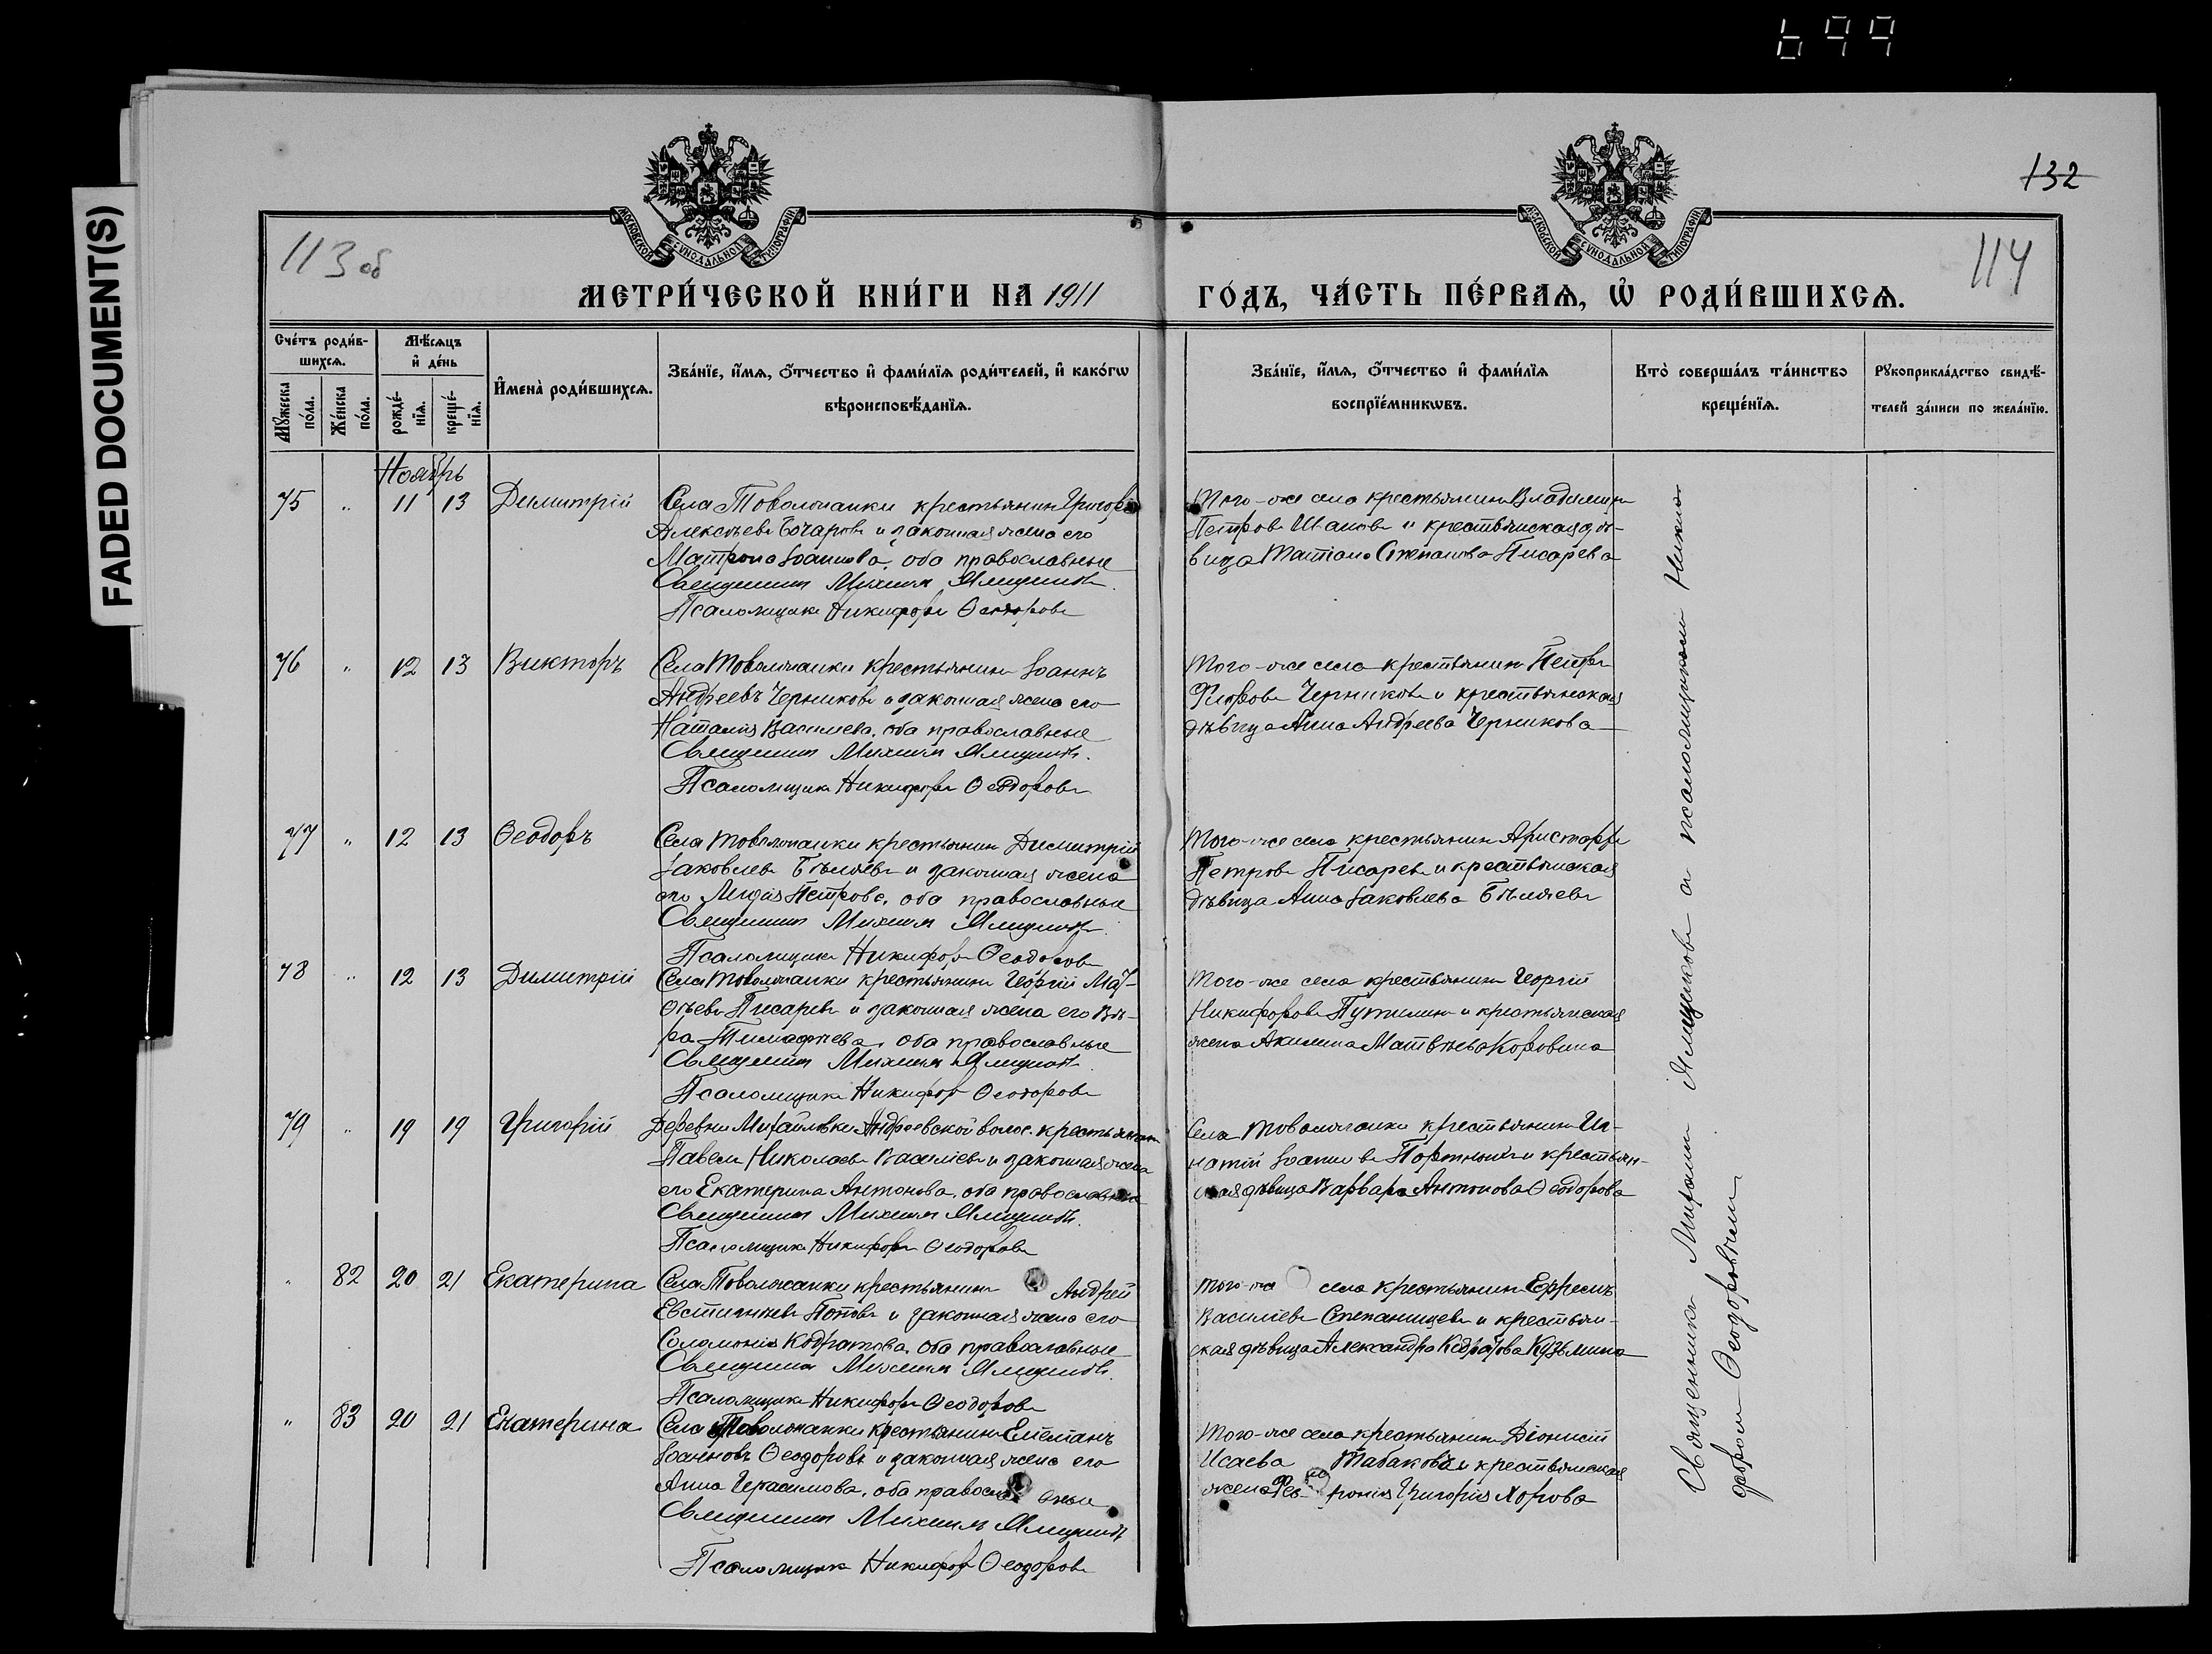 699
FADED DOCUMENT(S)
132
113 об
114
МОСКОВСКОЙ СѴНОДАЛЬНОЙ ТИПОГРАФІИ
МОСКОВСКОЙ СѴНОДАЛЬНОЙ ТИПОГРАФІИ
МЕТРИ́ЧЕСКОЙ КНИ́ГИ НА 1911
ГО́ДЪ, ЧА́СТЬ ПЕ́РВАѦ, Ѡ҆ РОДИ́ВШИХСѦ.
Сче́тъ роди́в-
шихсѧ.
Мѣ́сѧцъ
и҆ де́нь
Мꙋ́жеска по́ла.
Же́нска по́ла.
рожде́-
нїѧ.
креще́-
нїѧ.
И҆мена̀ роди́вшихсѧ.
Зва́нїе, и҆́мѧ, ѻ҆́тчество и҆ фами́лїѧ роди́телей, и҆ како́гѡ
вѣроисповѣ́данїѧ.
Зва́нїе, и҆́мѧ, ѻ҆́тчество и҆ фами́лїѧ
воспрїе́мникѡвъ.
Кто̀ соверша́лъ та́инство
креще́нїѧ.
Рꙋкоприкла́дство свидѣ́-
телей за́писи по жела́нїю.
Ноябрь
75 " 11 13 Димитрій
Села Товолжанки крестьянинъ Григорій
Алексѣевъ Бочаровъ и законная жена его
Матрона Іоаннова, оба православные
Священникъ Михаилъ Ямщиковъ.
Псаломщикъ Никифоръ Ѳеодоровъ
Того-же села крестьянинъ Владимиръ
Петровъ Ивановъ и крестьянская дѣ-
вица Татіана Степанова Писарева
76 " 12 13 Викторъ
Села Товолжанки крестьянинъ Іоаннъ
Андреевъ Черниковъ и законная жена его
Наталія Васильева, оба православные
Священникъ Михаилъ Ямщиковъ.
Псаломщикъ Никифоръ Ѳеодоровъ
Того-же села крестьянинъ Петръ
Флоровъ Черниковъ и крестьянская
дѣвица Анна Андреева Черникова
77 " 12 13 Ѳеодоръ
Села Товолжанки крестьянинъ Димитрій
Іаковлевъ Бѣляевъ и законная жена
его Лидія Петрова, оба православные
Священникъ Михаилъ Ямщиковъ.
Псаломщикъ Никифоръ Ѳеодоровъ
Того-же села крестьянинъ Аристархъ
Петровъ Писаревъ и крестьянская
дѣвица Анна Іаковлева Бѣляева
78 " 12 13 Димитрій
Села Товолжанки крестьянинъ Георгій Мат-
ѳѣевъ Писаревъ и законная жена его Вѣ-
ра Тимофеева, оба православные
Священникъ Михаилъ Ямщиковъ.
Псаломщикъ Никифоръ Ѳеодоровъ
Того-же села крестьянинъ Георгій
Никифоровъ Путилинъ и крестьянская
жена Акилина Матвѣева Коровина
79 " 19 19 Григорій
Деревни Михайловки Андреевской волос. крестьянинъ
Павелъ Николаевъ Василіевъ и законная жена
его Екатерина Антонова, оба православные
Священникъ Михаилъ Ямщиковъ.
Псаломщикъ Никифоръ Ѳеодоровъ
Села Товолжанки крестьянинъ Иг-
натій Іоанновъ Портныхъ и крестьян-
ская дѣвица Варвара Антонова Ѳеодорова
" 82 20 21 Екатерина
Села Товолжанки крестьянинъ Андрей
Евстигнеевъ Поповъ и законная жена его
Соломонія Кодратова, оба православные
Священникъ Михаилъ Ямщиковъ.
Псаломщикъ Никифоръ Ѳеодоровъ
Того-же села крестьянинъ Ефремъ
Василіевъ Степанищевъ и крестьян-
ская дѣвица Александра Кодратова Кузьмина
" 83 20 21 Екатерина
Села Товолжанки крестьянинъ Емеліанъ
Іоанновъ Ѳеодоровъ и законная жена его
Анна Герасимова, оба православные
Священникъ Михаилъ Ямщиковъ
Псаломщикъ Никифоръ Ѳеодоровъ
Того-же села крестьянинъ Діонисій
Исаевъ Табаковъ и крестьянская
жена Феврония Григорія
Священникъ Михаилъ Ямщиковъ съ псаломщикомъ Никифоромъ Ѳеодоровымъ